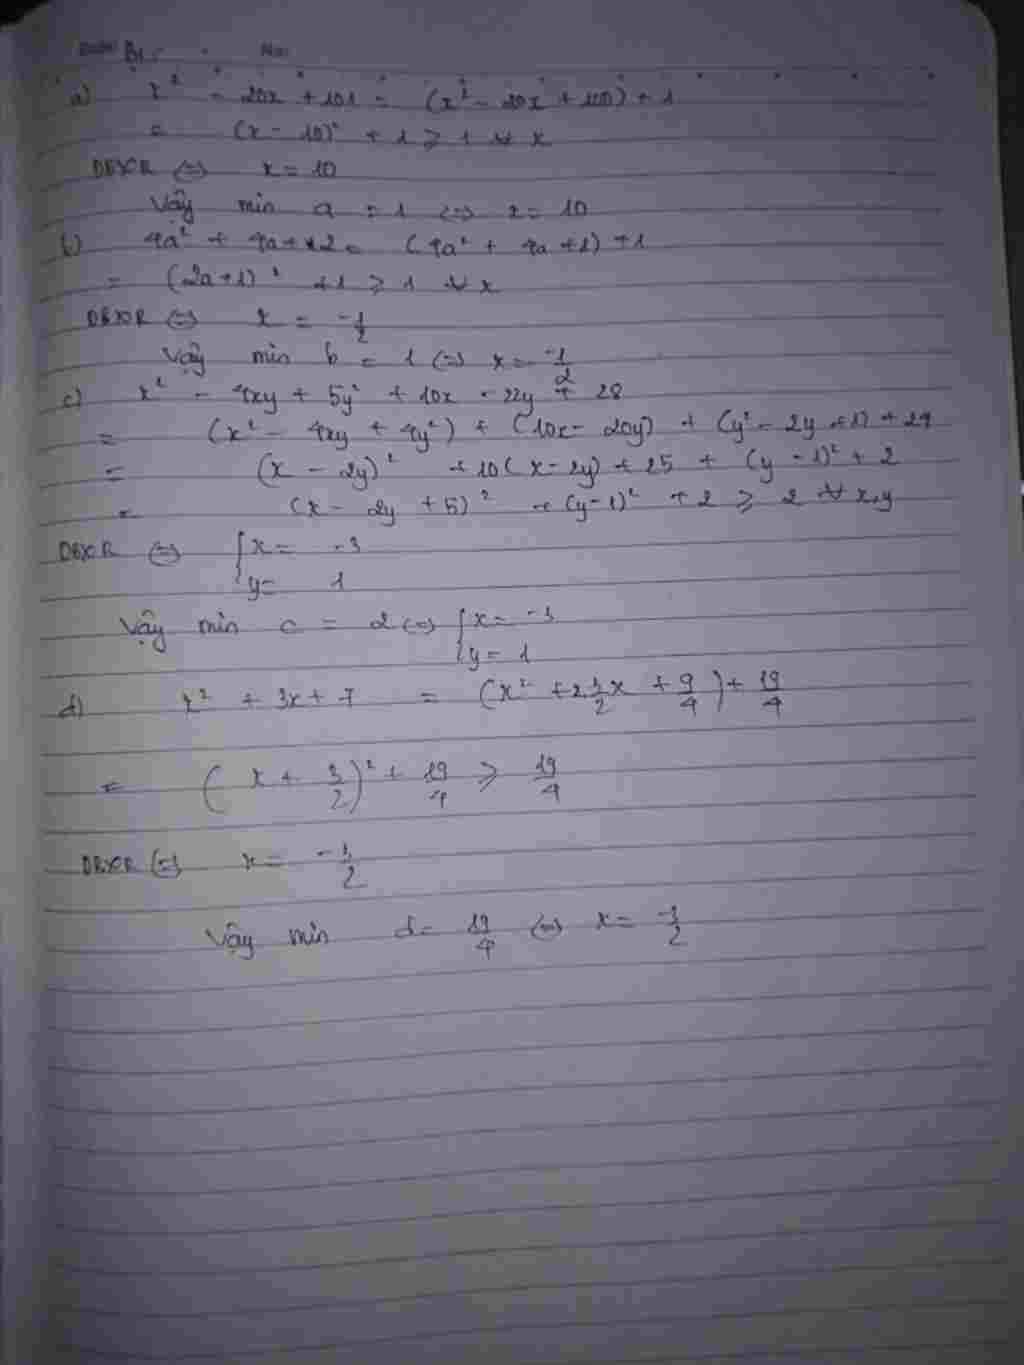 B1:
No:
a) x² - 20x + 101 = (x² - 20x + 100) + 1
= (x - 10)² + 1 ≥ 1 ∀ x
DBXR ⇔ x = 10
Vậy min a = 1 ⇔ x = 10
b) 4a² + 4a + 2 = (4a² + 4a + 1) + 1
= (2a + 1)² + 1 ≥ 1 ∀ x
DBXR ⇔ x = -1/2
Vậy min b = 1 ⇔ x = -1/2
c) x² - 4xy + 5y² + 10x - 22y + 28
= (x² - 4xy + 4y²) + (10x - 20y) + (y² - 2y + 1) + 27
= (x - 2y)² + 10(x - 2y) + 25 + (y - 1)² + 2
= (x - 2y + 5)² + (y - 1)² + 2 ≥ 2 ∀ x, y
DBXR ⇔ { x = -3
y = 1
Vậy min c = 2 ⇔ { x = -3
y = 1
d) x² + 3x + 7 = (x² + 2 3/2 x + 9/4) + 19/4
= (x + 3/2)² + 19/4 ≥ 19/4
DBXR ⇔ x = -3/2
Vậy min d = 19/4 ⇔ x = -3/2